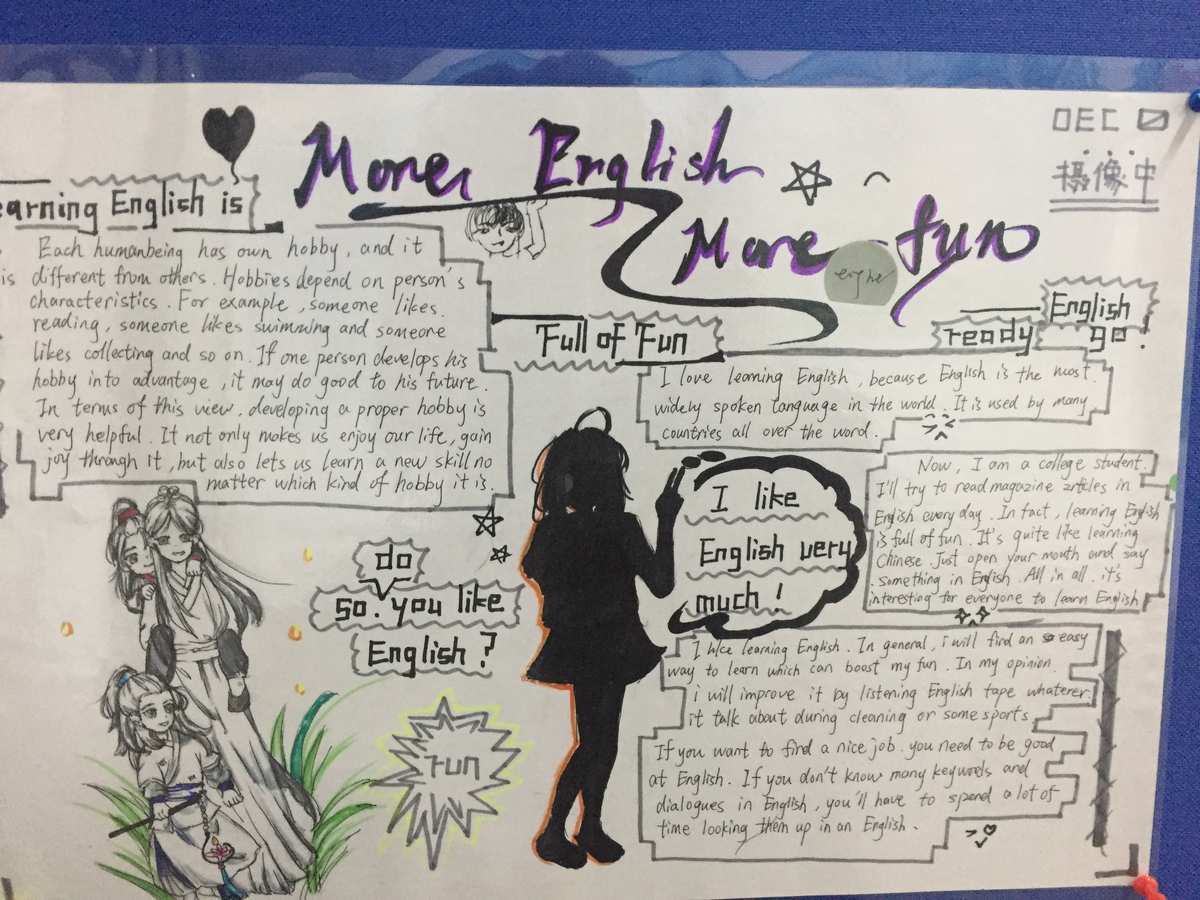 More English
More fun
OEC
摄像中
earning English is
Each humanbeing has own hobby, and it
is different from others. Hobbies depend on person's
characteristics. For example, someone likes.
reading, someone likes swimming and someone
likes collecting and so on. If one person develops his
hobby into advantage, it may do good to his future.
In terms of this view, developing a proper hobby is
very helpful. It not only makes us enjoy our life, gain
joy through it, but also lets us learn a new skill no
matter which kind of hobby it is.
Full of Fun
English
ready go!
I love learning English, because English is the most
widely spoken language in the world. It is used by many
countries all over the word.
I like
English very
much!
Now, I am a college student.
I'll try to read magazine articles in
English every day. In fact, learning English
is full of fun. It's quite like learning
Chinese. Just open your mouth and say
something in English. All in all, it's
interesting for everyone to learn English
do
so. you like
English?
Fun
I like learning English. In general, i will find an easy
way to learn which can boast my fun. In my opinion
i will improve it by listening English tape whaterer.
it talk about during cleaning or some sports.
If you want to find a nice job. you need to be good
at English. If you don't know many keywords and
dialogues in English, you'll have to spend a lot of
time looking them up in an English.